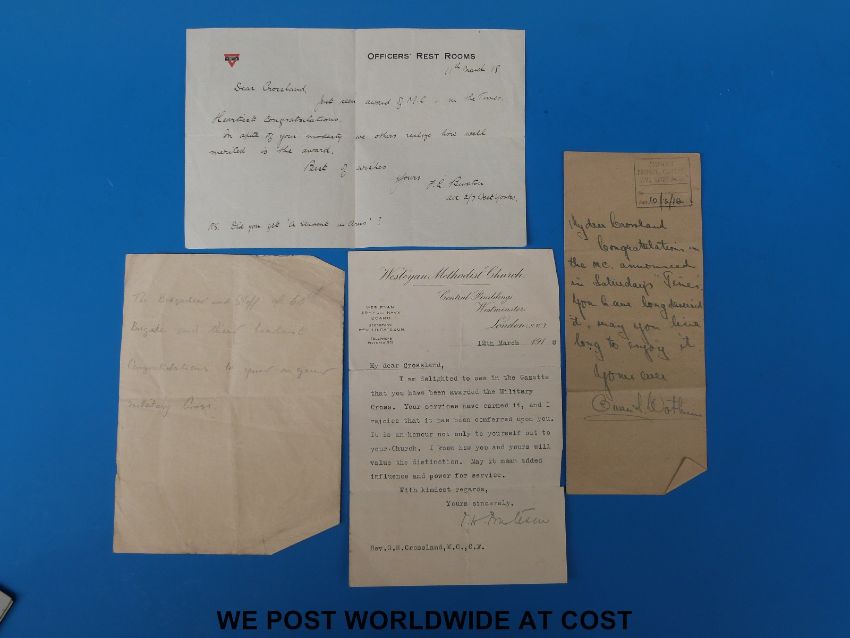 OFFICERS' REST ROOMS
11th March 18
Dear Crossland,
Just seen award of M.C. in the Times.
Heartiest Congratulations.
In spite of your modesty we others realize how well
merited is the award.
Best of wishes
Yours
att 2/7 West Yorks.
PS. Did you get 'A Student in Arms'?
The Brigadier and Staff of
Brigade send their heartiest
Congratulations to you on your
Military Cross.
Wesleyan Methodist Church.
Central Buildings,
Westminster,
London, S.W.1
WESLEYAN
ARMY AND NAVY
BOARD
SECRETARY
TELEPHONE
12th March 1918
My dear Crossland,
I am delighted to see in the Gazette
that you have been awarded the Military
Cross. Your services have earned it, and I
rejoice that it has been conferred upon you.
It is an honour not only to yourself but to
your Church. I know how you and yours will
value the distinction. May it mean added
influence and power for service.
With kindest regards,
Yours sincerely,
Rev.G.H.Crossland,M.C.,C.F.
10/3/18
My dear Crossland
Congratulations on
the MC. announced
in Saturday's 'Times'.
You have long deserved
it, may you live
long to enjoy it.
Yours ever
WE POST WORLDWIDE AT COST